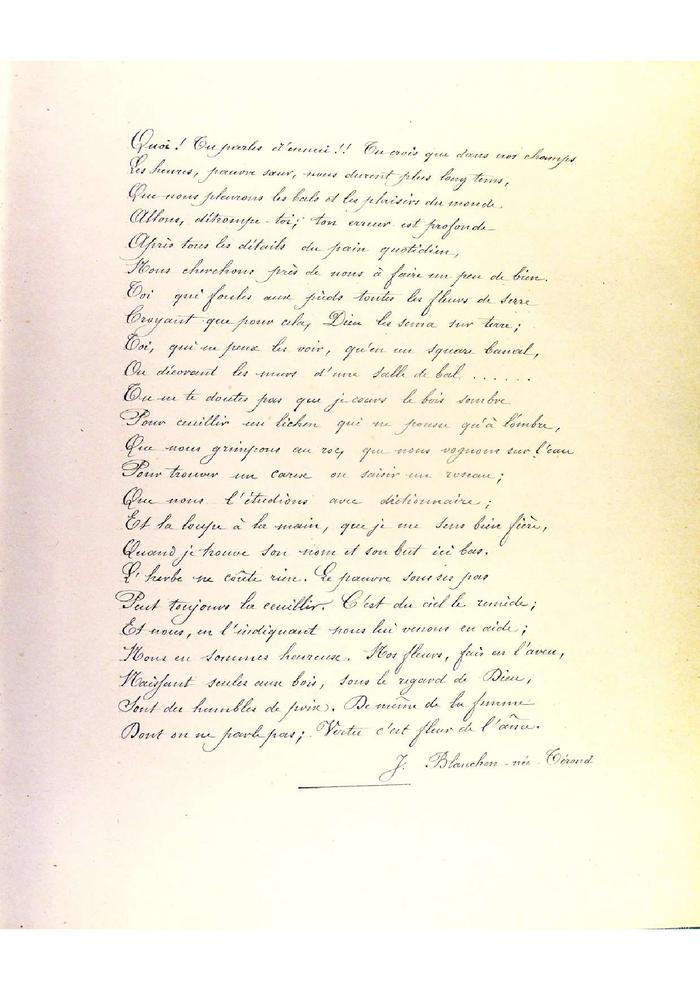 Quoi ! Tu parles d'ennui !! Tu crois que dans nos champs
Les heures, pauvre sœur, nous durent plus long tems,
Que nous pleurons les bals et les plaisirs du monde
Allons, détrompe-toi ; ton erreur est profonde
Après tous les détails du pain quotidien,
Nous cherchons près de nous à faire un peu de bien.
Toi qui foules aux pieds toutes les fleurs de serre
Croyant que pour cela, Dieu les sema sur terre ;
Toi, qui ne peux les voir, qu'en un square banal,
Ou décorant les murs d'une salle de bal ......
Tu ne te doutes pas que je cours le bois sombre
Pour cueillir un lichen qui ne pousse qu'à l'ombre,
Que nous grimpons au roc, que nous voguons sur l'eau
Pour trouver un carex ou saisir un roseau ;
Que nous l'étudions avec dictionnaire ;
Et la loupe à la main, que je me sens bien fière,
Quand je trouve son nom et son but ici bas.
L'herbe ne coûte rien. Le pauvre sous ses pas
Peut toujours la cueillir. C'est du ciel le remède ;
Et nous, en l'indiquant nous lui venons en aide ;
Nous en sommes heureux. Nos fleurs, fais en l'aveu,
Naissant seules aux bois, sous le regard de Dieu,
Sont des humbles de prix. De même de la femme
Dont on ne parle pas ; Vertu c'est fleur de l'âme.
J. Blanchon - née - Térond